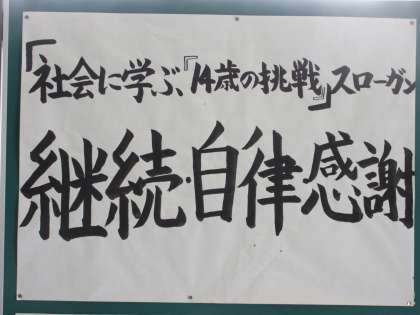 「社会に学ぶ、『14歳の挑戦』」スローガン
継続・自律・感謝